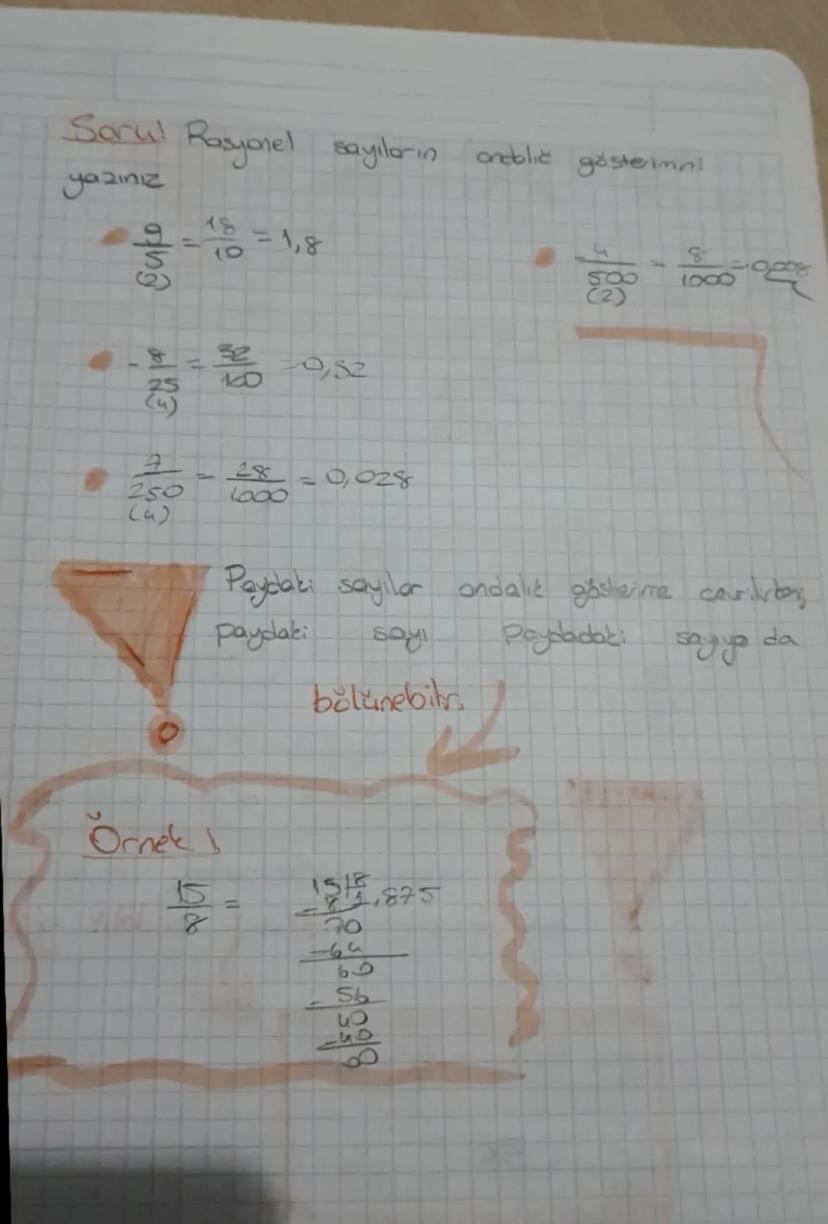 Soru! Rasyonel sayıların ondalık gösterimni
yazınız
9/5 (2) = 18/10 = 1,8
-4/500 (2) = 8/1000 = -0,008
- 8/25 (4) = 32/100 = -0,32
7/250 (4) = 28/1000 = 0,028
Paydaki sayılar ondalık gösterime çevrilirken,
paydaki sayı Paydadaki sayıya da
bölünebilir.
Örnek!
15/8 =
15 | 8
- 8 1,875
70
-64
60
- 56
40
-40
00